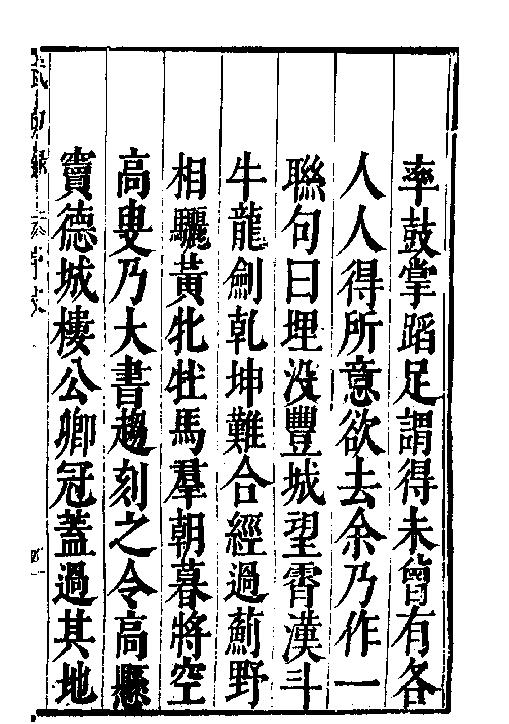 率鼓掌蹈足謂得未曾有各
人人得所意欲去余乃作一
聯句曰埋没豐城望霄漢斗
牛龍劍乾坤難合經過薊野
相驪黃牝牡馬羣朝暮將空
高叟乃大書趨刻之令高懸
竇德城樓公卿冠蓋過其地